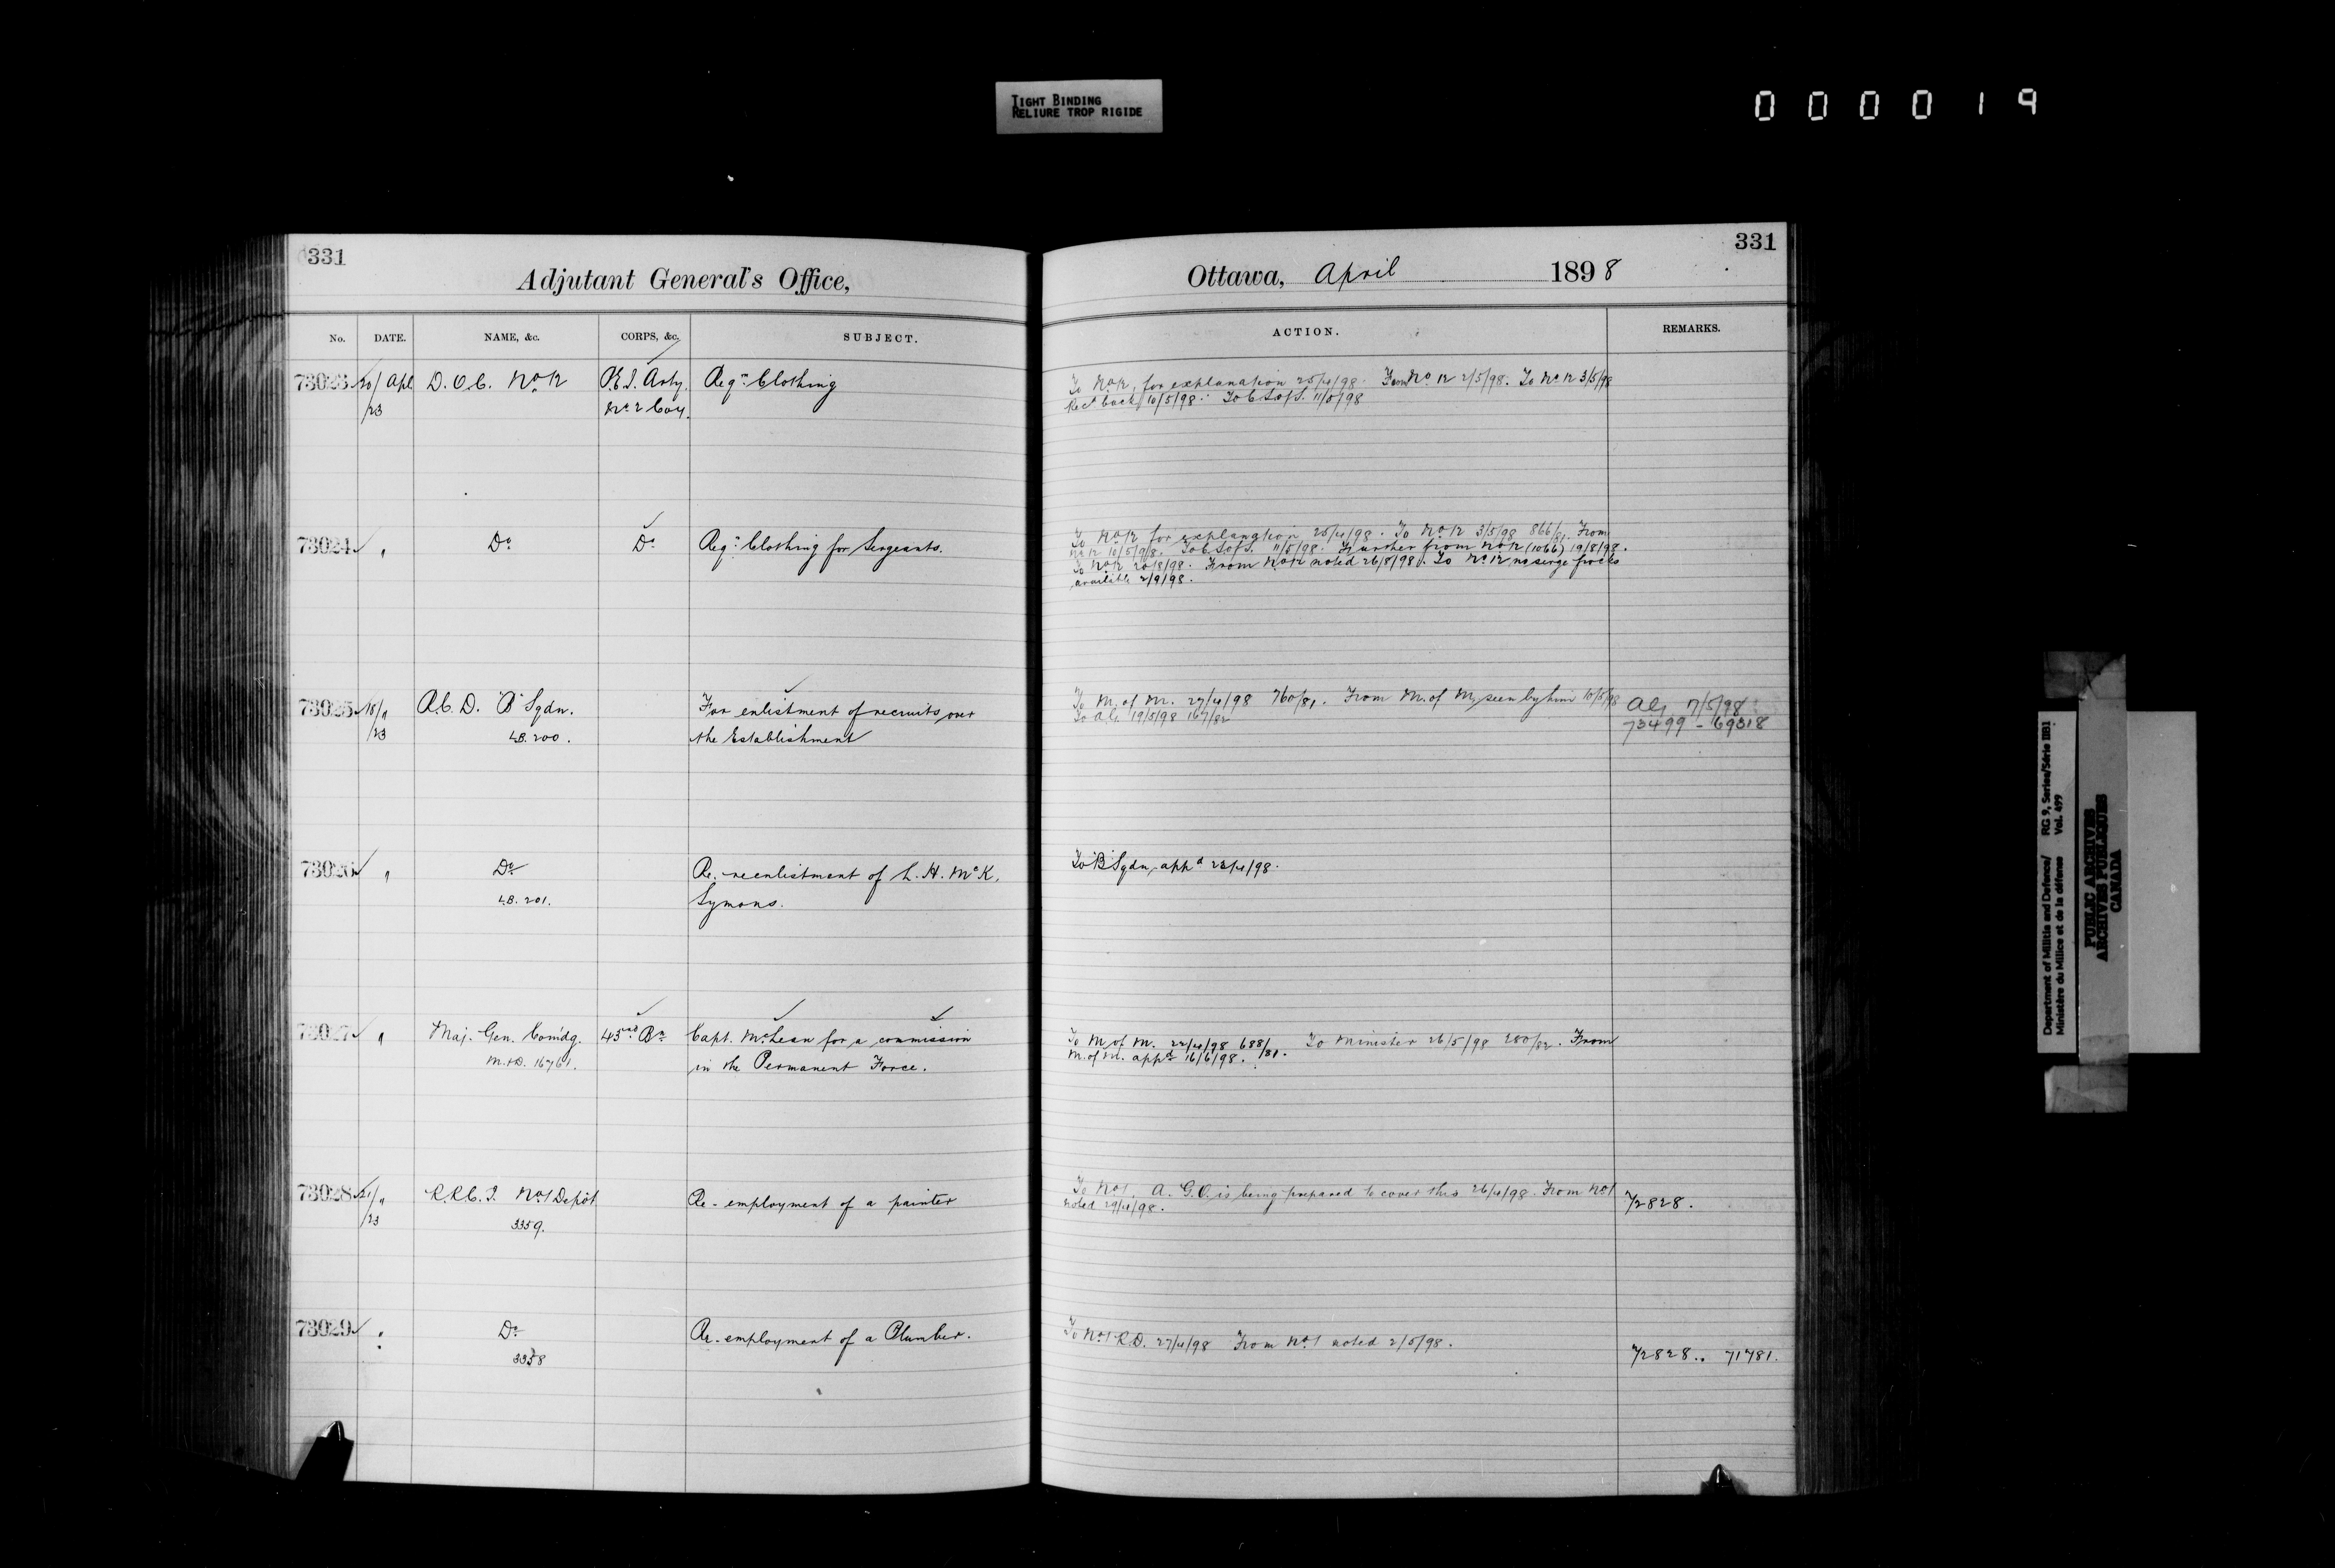 TIGHT BINDING
RELIURE TROP RIGIDE
000019
331
Adjutant General's Office,
No. DATE. NAME, &c. CORPS, &c. SUBJECT.
73023 20/ Apl D.O.C. No 12 P.E.I. Arty. Reqn Clothing
/23 No 2 Coy.
73024 " Do Do Reqn Clothing for Sergeants.
73025 18/ " R.C.D. "B" Sqdn. For enlistment of recruits over
/23 LB. 200. the Establishment
73026 " Do Re-reenlistment of L. H. McK.
LB. 201. Symons.
73027 " Maj. Gen. Comdg. 43rd Bn Capt. McLean for a commission
M.&D. 16761. in the Permanent Force.
73028 21/ " R.R.C.I. No 1 Depôt Re-employment of a painter
/23 3359.
73029 " Do Re-employment of a Plumber.
3358
331
Ottawa, April 1898
ACTION. REMARKS.
To No 12, for explanation 25/4/98. From No 12 2/5/98. To No 12 3/5/98
Recd back 10/5/98. To C.S. of S. 11/5/98
To No 12 for explanation 25/4/98. To No 12 3/5/98 866/81. From
No 12 10/5/98. To C.S. of S. 11/5/98. Further from No 12 (1066) 19/8/98.
To No 12 20/8/98. From No 12 noted 26/8/98. To No 12 no serge frocks
available 2/9/98.
To M. of M. 27/4/98 760/81. From M. of M. seen by him 10/5/98 AG 7/5/98
To A.G. 19/5/98 167/82 73499 - 69318
To "B" Sqdn, appd 23/4/98.
To M. of M. 22/4/98 688/81. To Minister 26/5/98 280/82. From
M. of M. appd 16/6/98.
To No 1. A. G.O. is being prepared to cover this 26/4/98. From No 1 72828.
noted 29/4/98.
To No 1 R.D. 27/4/98 From No 1 noted 2/5/98.
72828.. 71781.
Department of Militia and Defence/ RG 9, Series/Série IIB1
Ministère du Milice et de la défense Vol. 499
PUBLIC ARCHIVES
ARCHIVES PUBLIQUES
CANADA